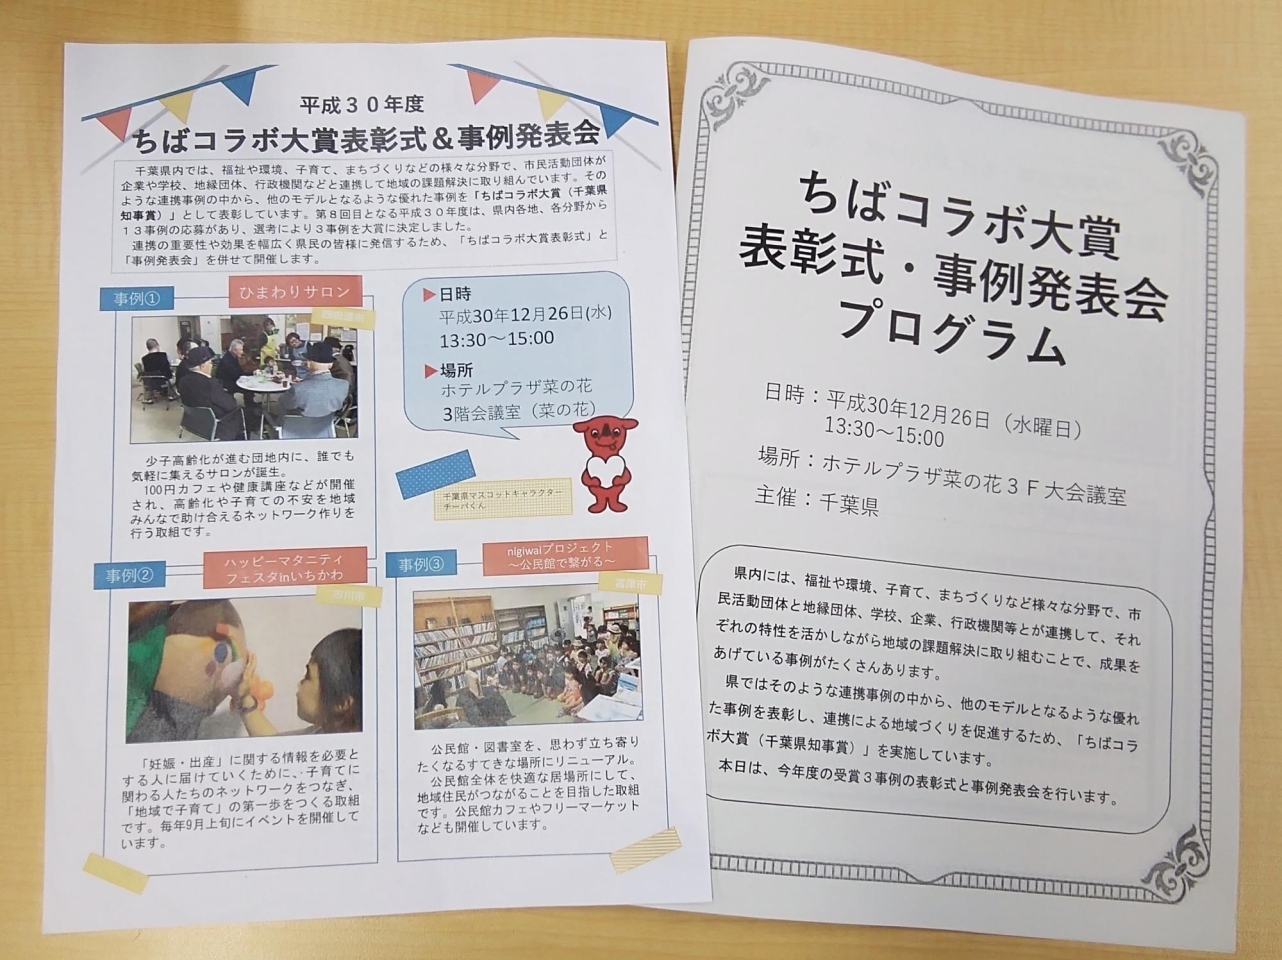 平成３０年度
ちばコラボ大賞表彰式＆事例発表会
千葉県内では、福祉や環境、子育て、まちづくりなどの様々な分野で、市民活動団体が
企業や学校、地縁団体、行政機関などと連携して地域の課題解決に取り組んでいます。その
ような連携事例の中から、他のモデルとなるような優れた事例を「ちばコラボ大賞（千葉県
知事賞）」として表彰しています。第８回目となる平成３０年度は、県内各地、各分野から
１３事例の応募があり、選考により３事例を大賞に決定しました。
連携の重要性や効果を幅広く県民の皆様に発信するため、「ちばコラボ大賞表彰式」と
「事例発表会」を併せて開催します。
事例①
ひまわりサロン
四街道市
少子高齢化が進む団地内に、誰でも
気軽に集えるサロンが誕生。
100円カフェや健康講座などが開催
され、高齢化や子育ての不安を地域
みんなで助け合えるネットワーク作りを
行う取組です。
日時
平成30年12月26日(水)
13:30～15:00
場所
ホテルプラザ菜の花
3階会議室（菜の花）
千葉県マスコットキャラクター
チーバくん
事例②
ハッピーマタニティ
フェスタinいちかわ
市川市
「妊娠・出産」に関する情報を必要と
する人に届けていくために、子育てに
関わる人たちのネットワークをつなぎ、
「地域で子育て」の第一歩をつくる取組
です。毎年9月上旬にイベントを開催して
います。
事例③
nigiwaiプロジェクト
～公民館で繋がる～
富津市
公民館・図書室を、思わず立ち寄り
たくなるすてきな場所にリニューアル。
公民館全体を快適な居場所にして、
地域住民がつながることを目指した取組
です。公民館カフェやフリーマーケット
なども開催しています。
ちばコラボ大賞
表彰式・事例発表会
プログラム
日時：平成30年12月26日（水曜日）
13:30～15:00
場所：ホテルプラザ菜の花３Ｆ大会議室
主催：千葉県
県内には、福祉や環境、子育て、まちづくりなど様々な分野で、市
民活動団体と地縁団体、学校、企業、行政機関等とが連携して、それ
ぞれの特性を活かしながら地域の課題解決に取り組むことで、成果を
あげている事例がたくさんあります。
県ではそのような連携事例の中から、他のモデルとなるような優れ
た事例を表彰し、連携による地域づくりを促進するため、「ちばコラ
ボ大賞（千葉県知事賞）」を実施しています。
本日は、今年度の受賞３事例の表彰式と事例発表会を行います。